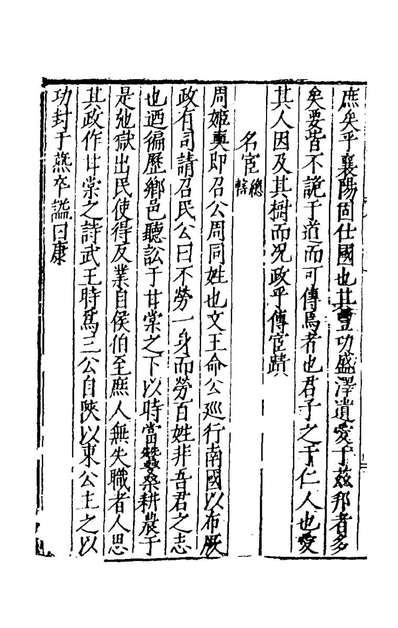 庶矣乎襄陽固仕國也其豐功盛澤遺愛于茲邦者多
矣要皆不詭于道而可傳焉者也君子之于仁人也愛
其人因及其樹而況政乎傳宦蹟
名宦總轄
周姬奭即召公周同姓也文王命公巡行南國以布厥
政有司請召民公曰不勞一身而勞百姓非吾君之志
也迺徧歷鄉邑聽訟于甘棠之下以時當蠶桑耕農于
是弛獄出民使得反業自侯伯至庶人無失職者人思
其政作甘棠之詩武王時為三公自陝以東公主之以
功封于燕卒謚曰康